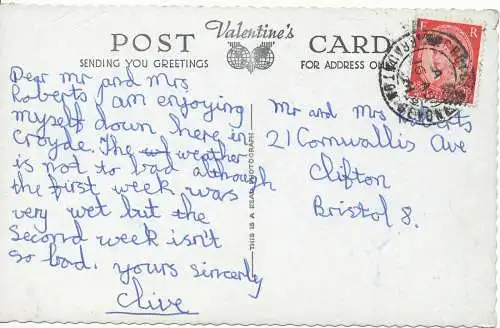 Valentine's
POST CARD
SENDING YOU GREETINGS
FOR ADDRESS ONLY
Dear Mr and Mrs
Roberts I am enjoying
myself down here in
Croyde. The weather
is not to bad although
the first week was
very wet but the
second week isn't
so bad. yours sincerly
Clive
THIS IS A REAL PHOTOGRAPH
Mr and Mrs Roberts
21 Cornwallis Ave
Clifton
Bristol 8.
E R